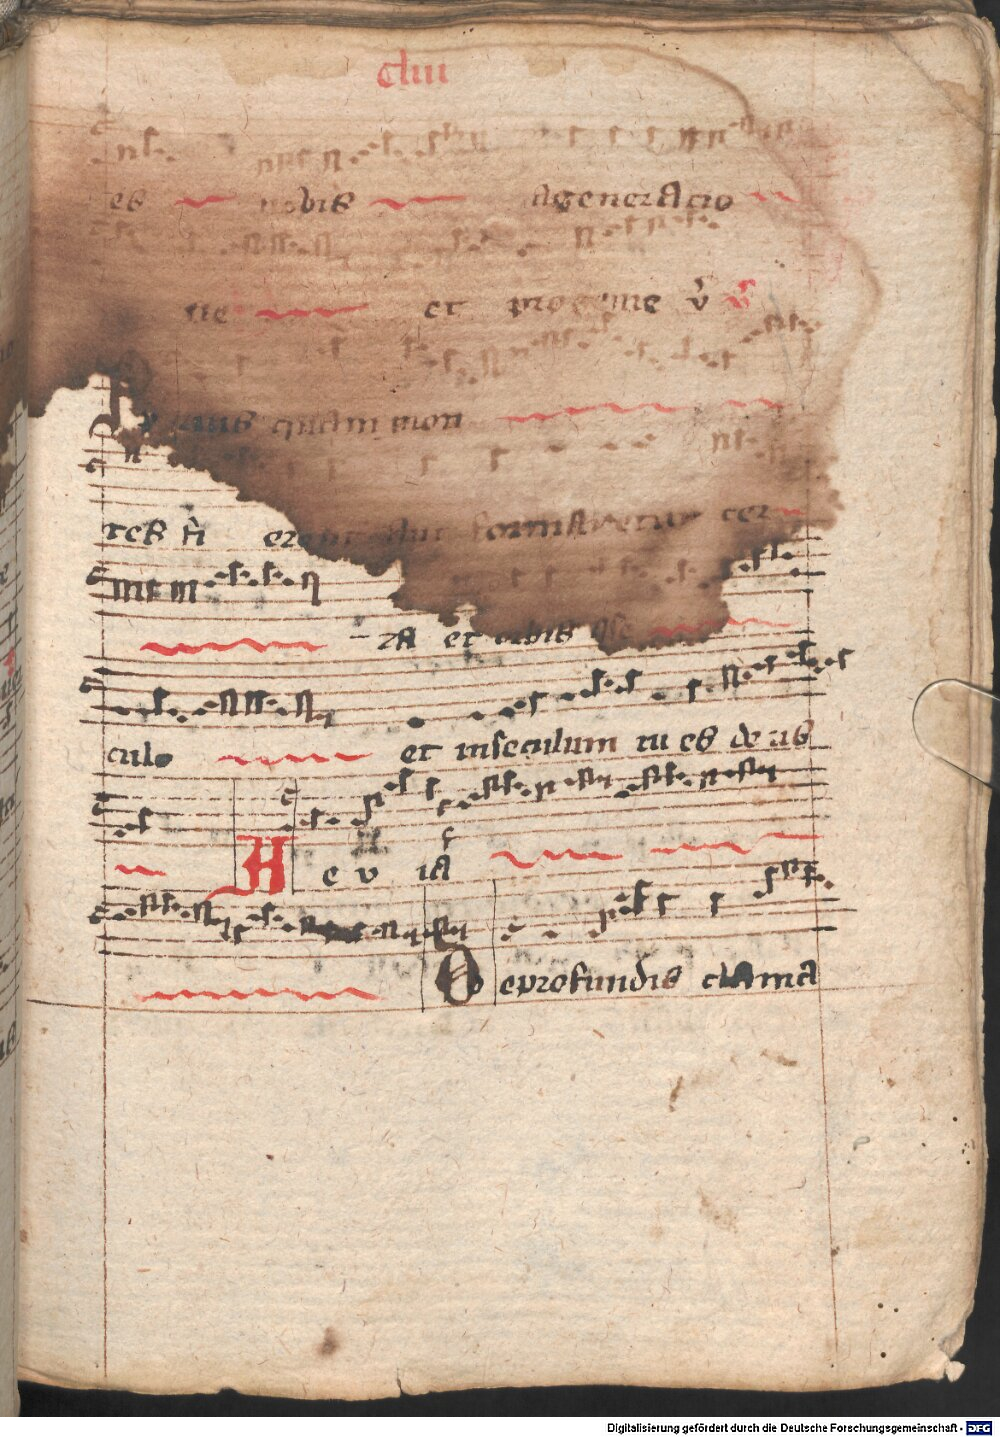 cliii
es nobis ageneracio
ne et progenie v̄ v̄
P quam mon
tes fi formaretur ter
ra et orbis ase
culo et inseculum tu es deus
A e v ia
Deprofundis clama
Digitalisierung gefördert durch die Deutsche Forschungsgemeinschaft - DFG